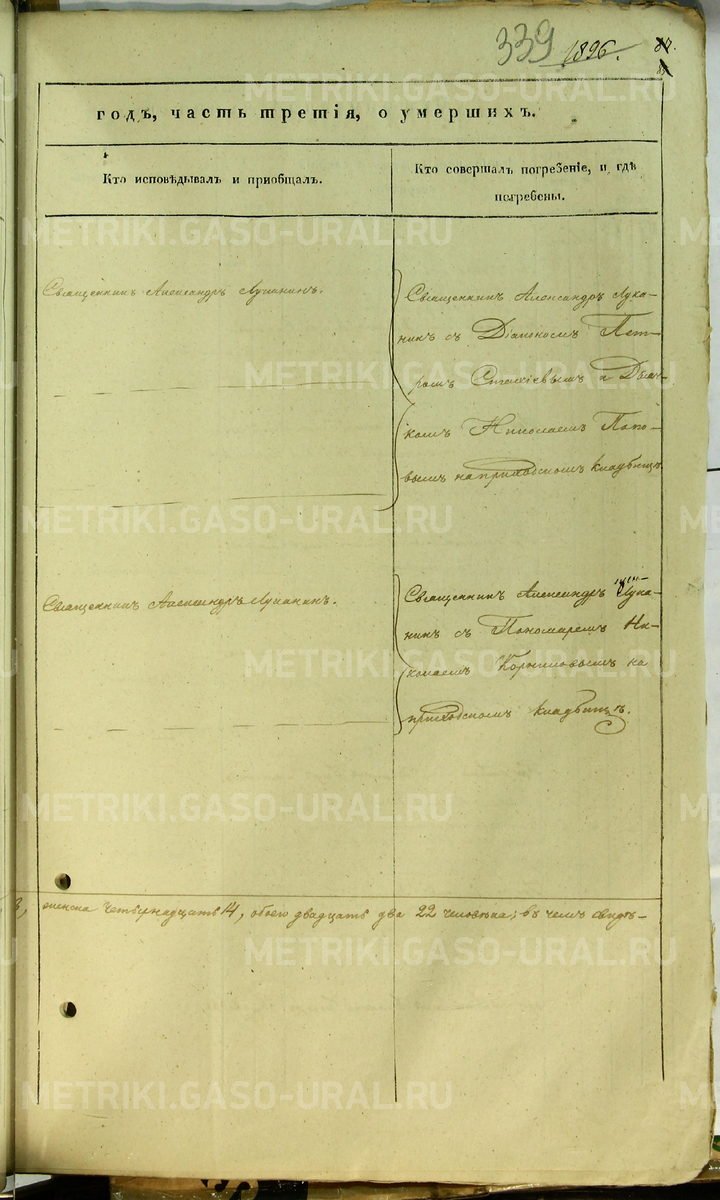 339 1896. 87.
годъ, часть третія, о умершихъ.
Кто исповѣдывалъ и приобщалъ.
Кто совершалъ погребеніе, и гдѣ
погребены.
Священникъ Александръ Луканинъ.
Священникъ Александръ Лука-
нинъ съ Діакономъ Пет-
ромъ и Дьяч-
комъ Николаемъ Попо-
вымъ на приходскомъ кладбищѣ
Священникъ Александръ Луканинъ.
Священникъ Александръ Лука-
нинъ съ Пономаремъ Ни-
колаемъ Корниловымъ на
приходскомъ кладбищѣ.
женска четырнадцать 14, обоего двадцать два 22 человѣка; въ чемъ свидѣ-
METRIKI.GASO-URAL.RU